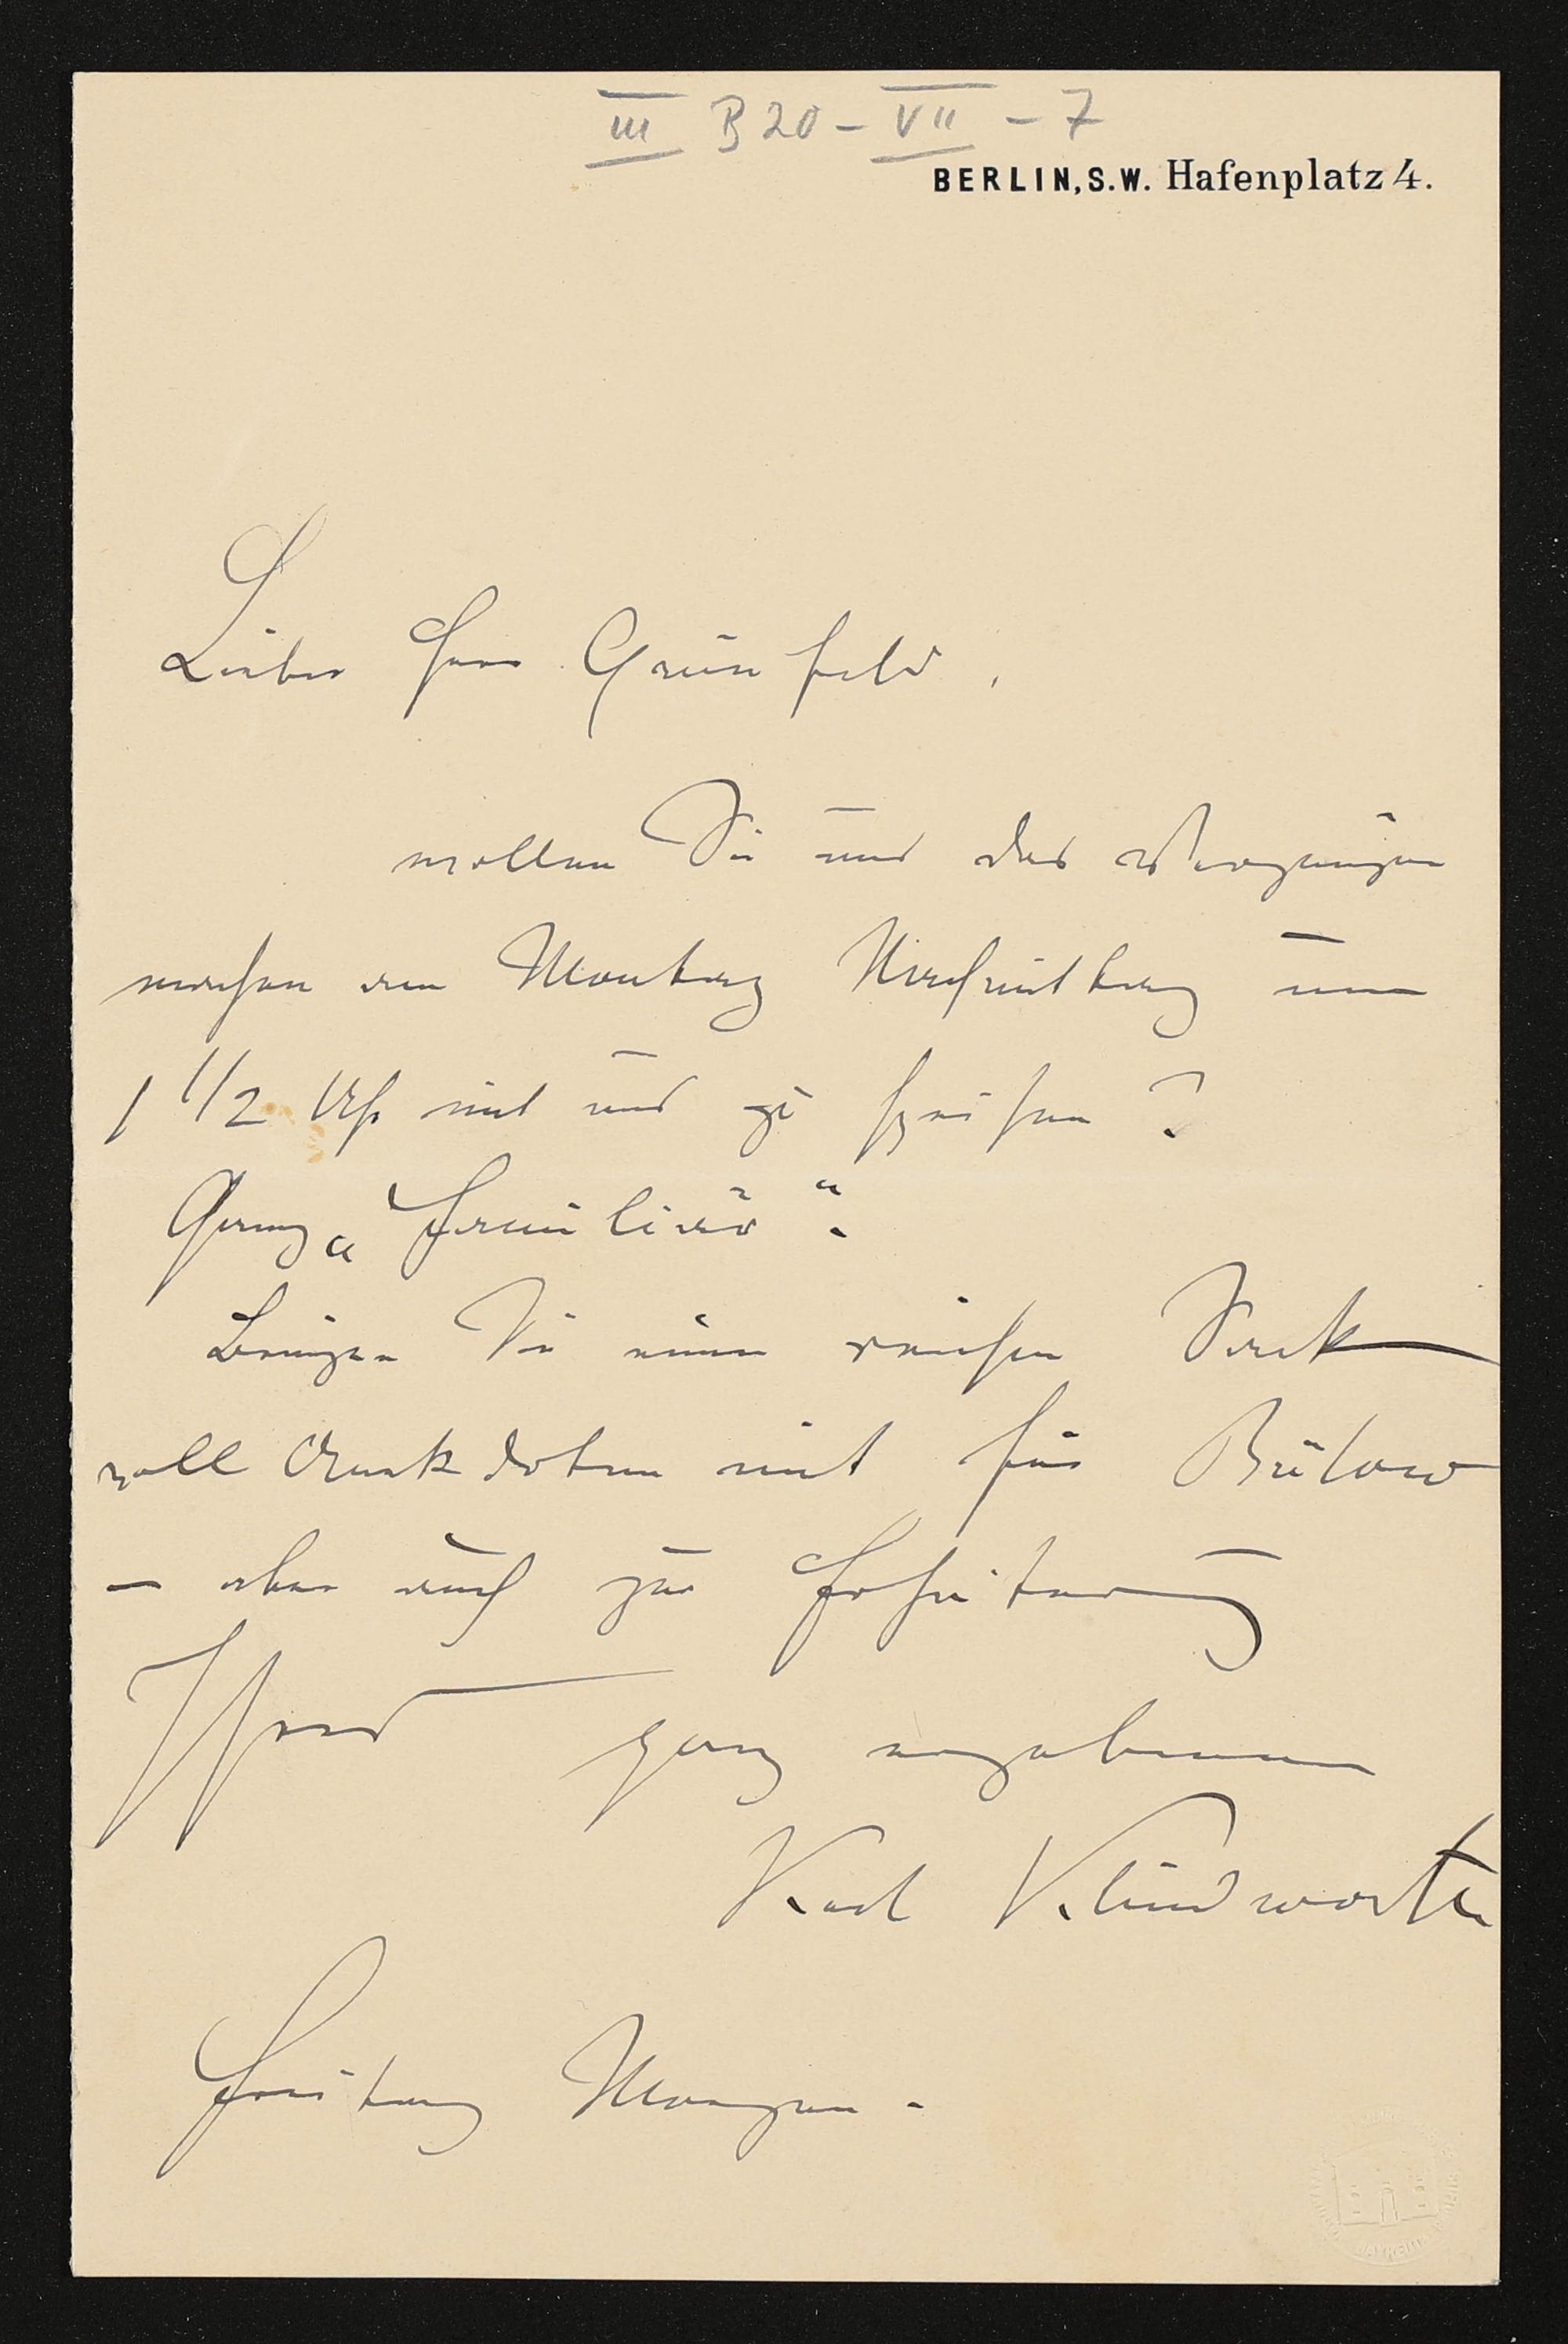 III B 20 - VII - 7
BERLIN, S.W. Hafenplatz 4.
Lieber Herr Grünfeld,
wollen Sie uns das Vergnügen
machen am Montag Nachmittag um
1 1/2 Uhr mit uns zu speisen?
Ganz „familiär“.
Bringen Sie einen reichen Sack
voll Anekdoten mit für Bülow
– aber auch zur Erheiterung
Ihres ganz ergebenen
Karl Klindworth
Freitag Morgen.